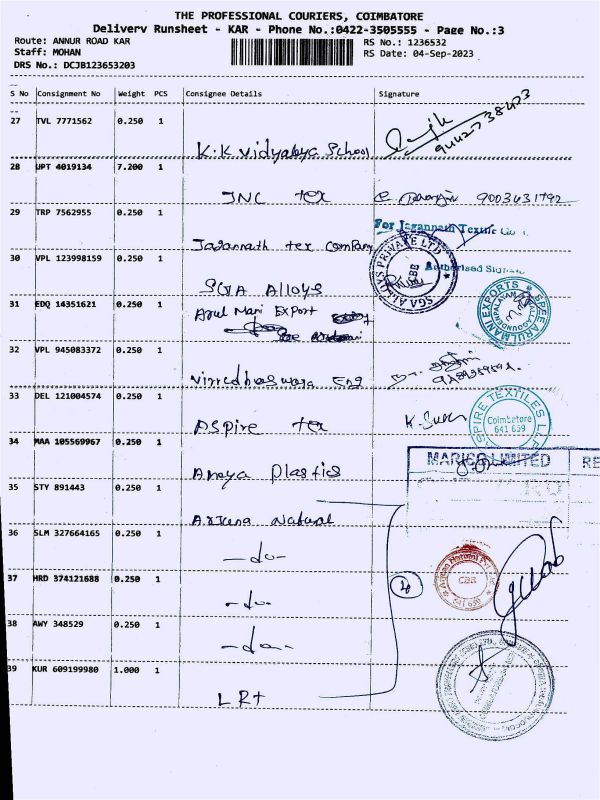 THE PROFESSIONAL COURIERS, COIMBATORE
Delivery Runsheet - KAR - Phone No.:0422-3505555 - Page No.:3
Route: ANNUR ROAD KAR
RS No.: 1236532
Staff: MOHAN
RS Date: 04-Sep-2023
DRS No.: DCJB123653203
S No Consignment No Weight PCS Consignee Details Signature
27 TVL 7771562 0.250 1
K.K vidyalaya School
28 UPT 4019134 7.200 1
JNC tex
29 TRP 7562955 0.250 1
For Jagannath Textile
Jagannath tex company
30 VPL 123998159 0.250 1
SGA ALLOYS PRIVATE LTD
SGA Alloys
31 EDQ 14351621 0.250 1
Arul Mari Export
SREE ARULMANI EXPORTS
32 VPL 945083372 0.250 1
Eng
33 DEL 121004574 0.250 1
Aspire tex
ASPIRE TEXTILES
Coimbatore
641 659
34 MAA 105569967 0.250 1
Anaya plastics
MARICO LIMITED
RE
35 STY 891443 0.250 1
Arjuna Natural
36 SLM 327664165 0.250 1
-do-
CBE
641 659
37 HRD 374121688 0.250 1
-do-
4
38 AWY 348529 0.250 1
-do-
39 KUR 609199980 1.000 1
LRt